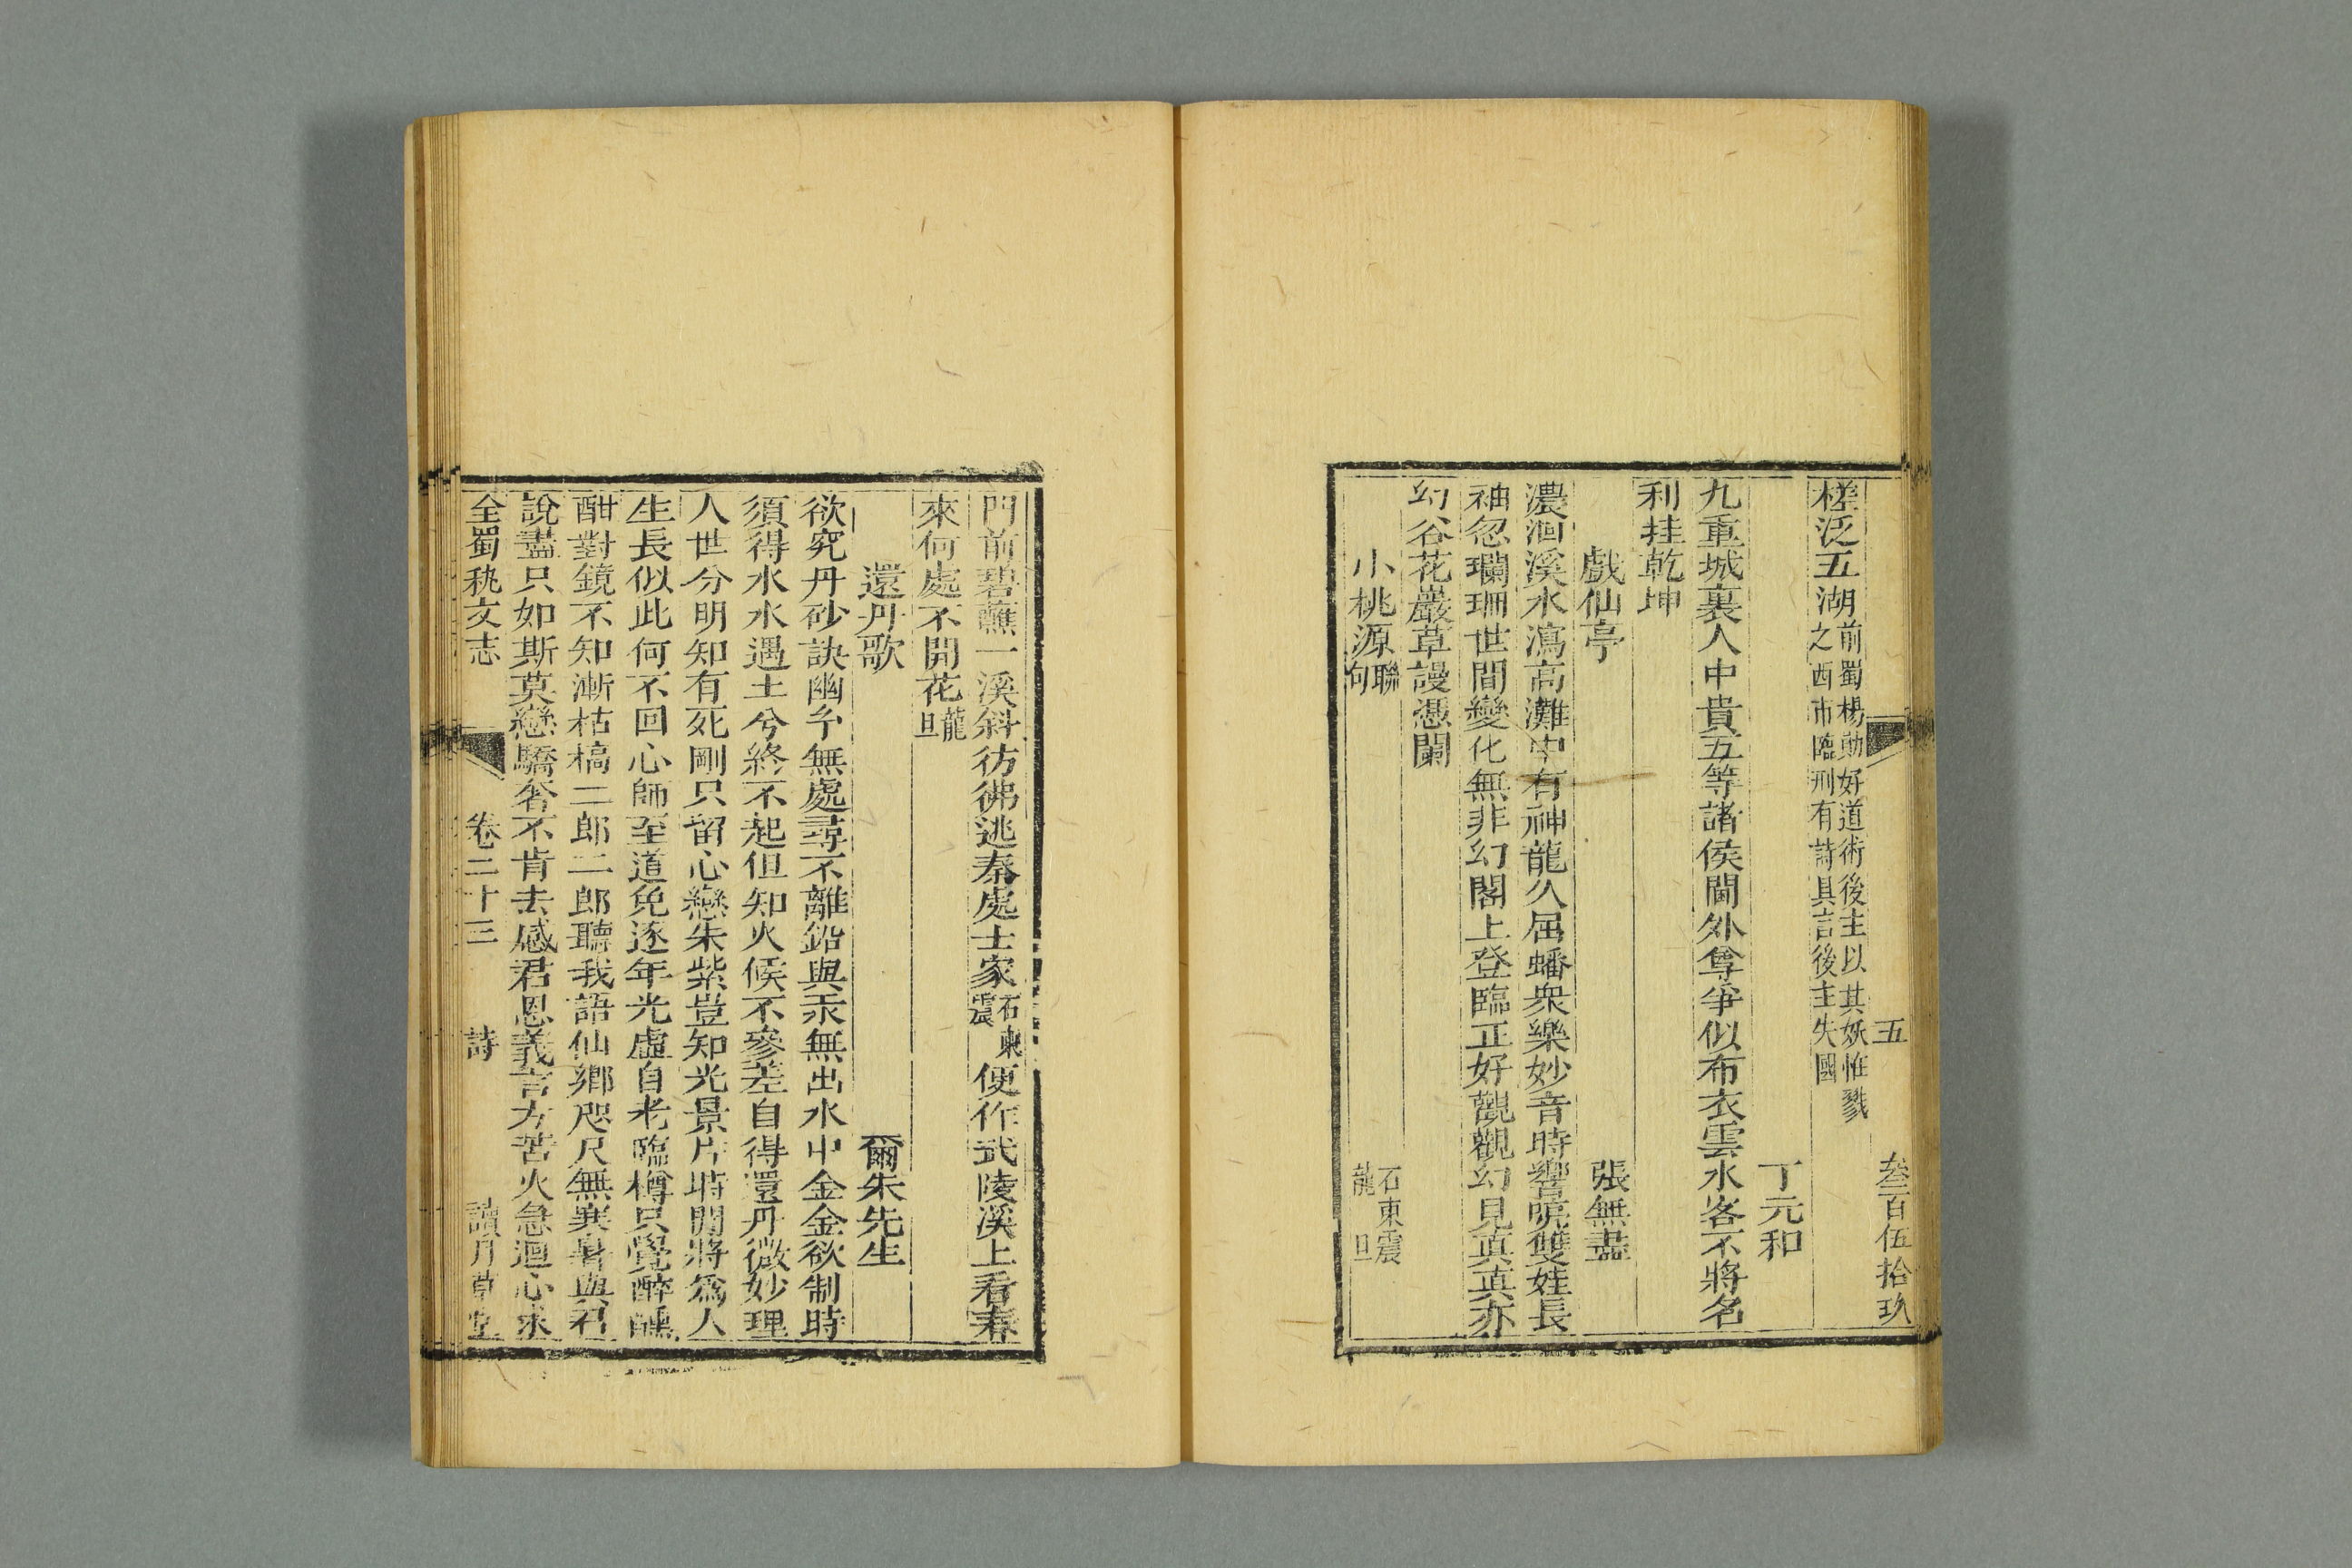 五　叁百伍拾玖
槎泛五湖前蜀楊勛好道術後主以其妖惟戮
之西市臨刑有詩具言後主失國
丁元和
九重城裏人中貴五等諸侯閫外尊爭似布衣雲水客不將名
利挂乾坤
戲仙亭　張無盡
濃洄溪水瀉高灘中有神龍久屈蟠衆樂妙音時響喨雙娃長
袖忽斕珊世間變化無非幻閣上登臨正好觀觀幻見真真亦
幻谷花巖草謾憑闌
小桃源聯句　石東震　龍旦
門前碧蘸一溪斜彷彿逃秦處士家石東震便作武陵溪上看春
來何處不開花龍旦
還丹歌　爾朱先生
欲究丹砂訣幽兮無處尋不離鉛與汞無出水中金金欲制時
須得水水遇土兮終不起但知火候不參差自得還丹微妙理
人世分明知有死剛只留心戀朱紫豈知光景片時間將爲人
生長似此何不回心師至道免逐年光虛自老臨樽只覺醉醺
酣對鏡不知漸枯槁二郎二郎聽我語仙鄉咫尺無寒暑與君
說盡只如斯莫戀驕奢不肯去感君恩義言方苦火急迴心求
全蜀秇文志　卷二十三　詩　讀月草堂